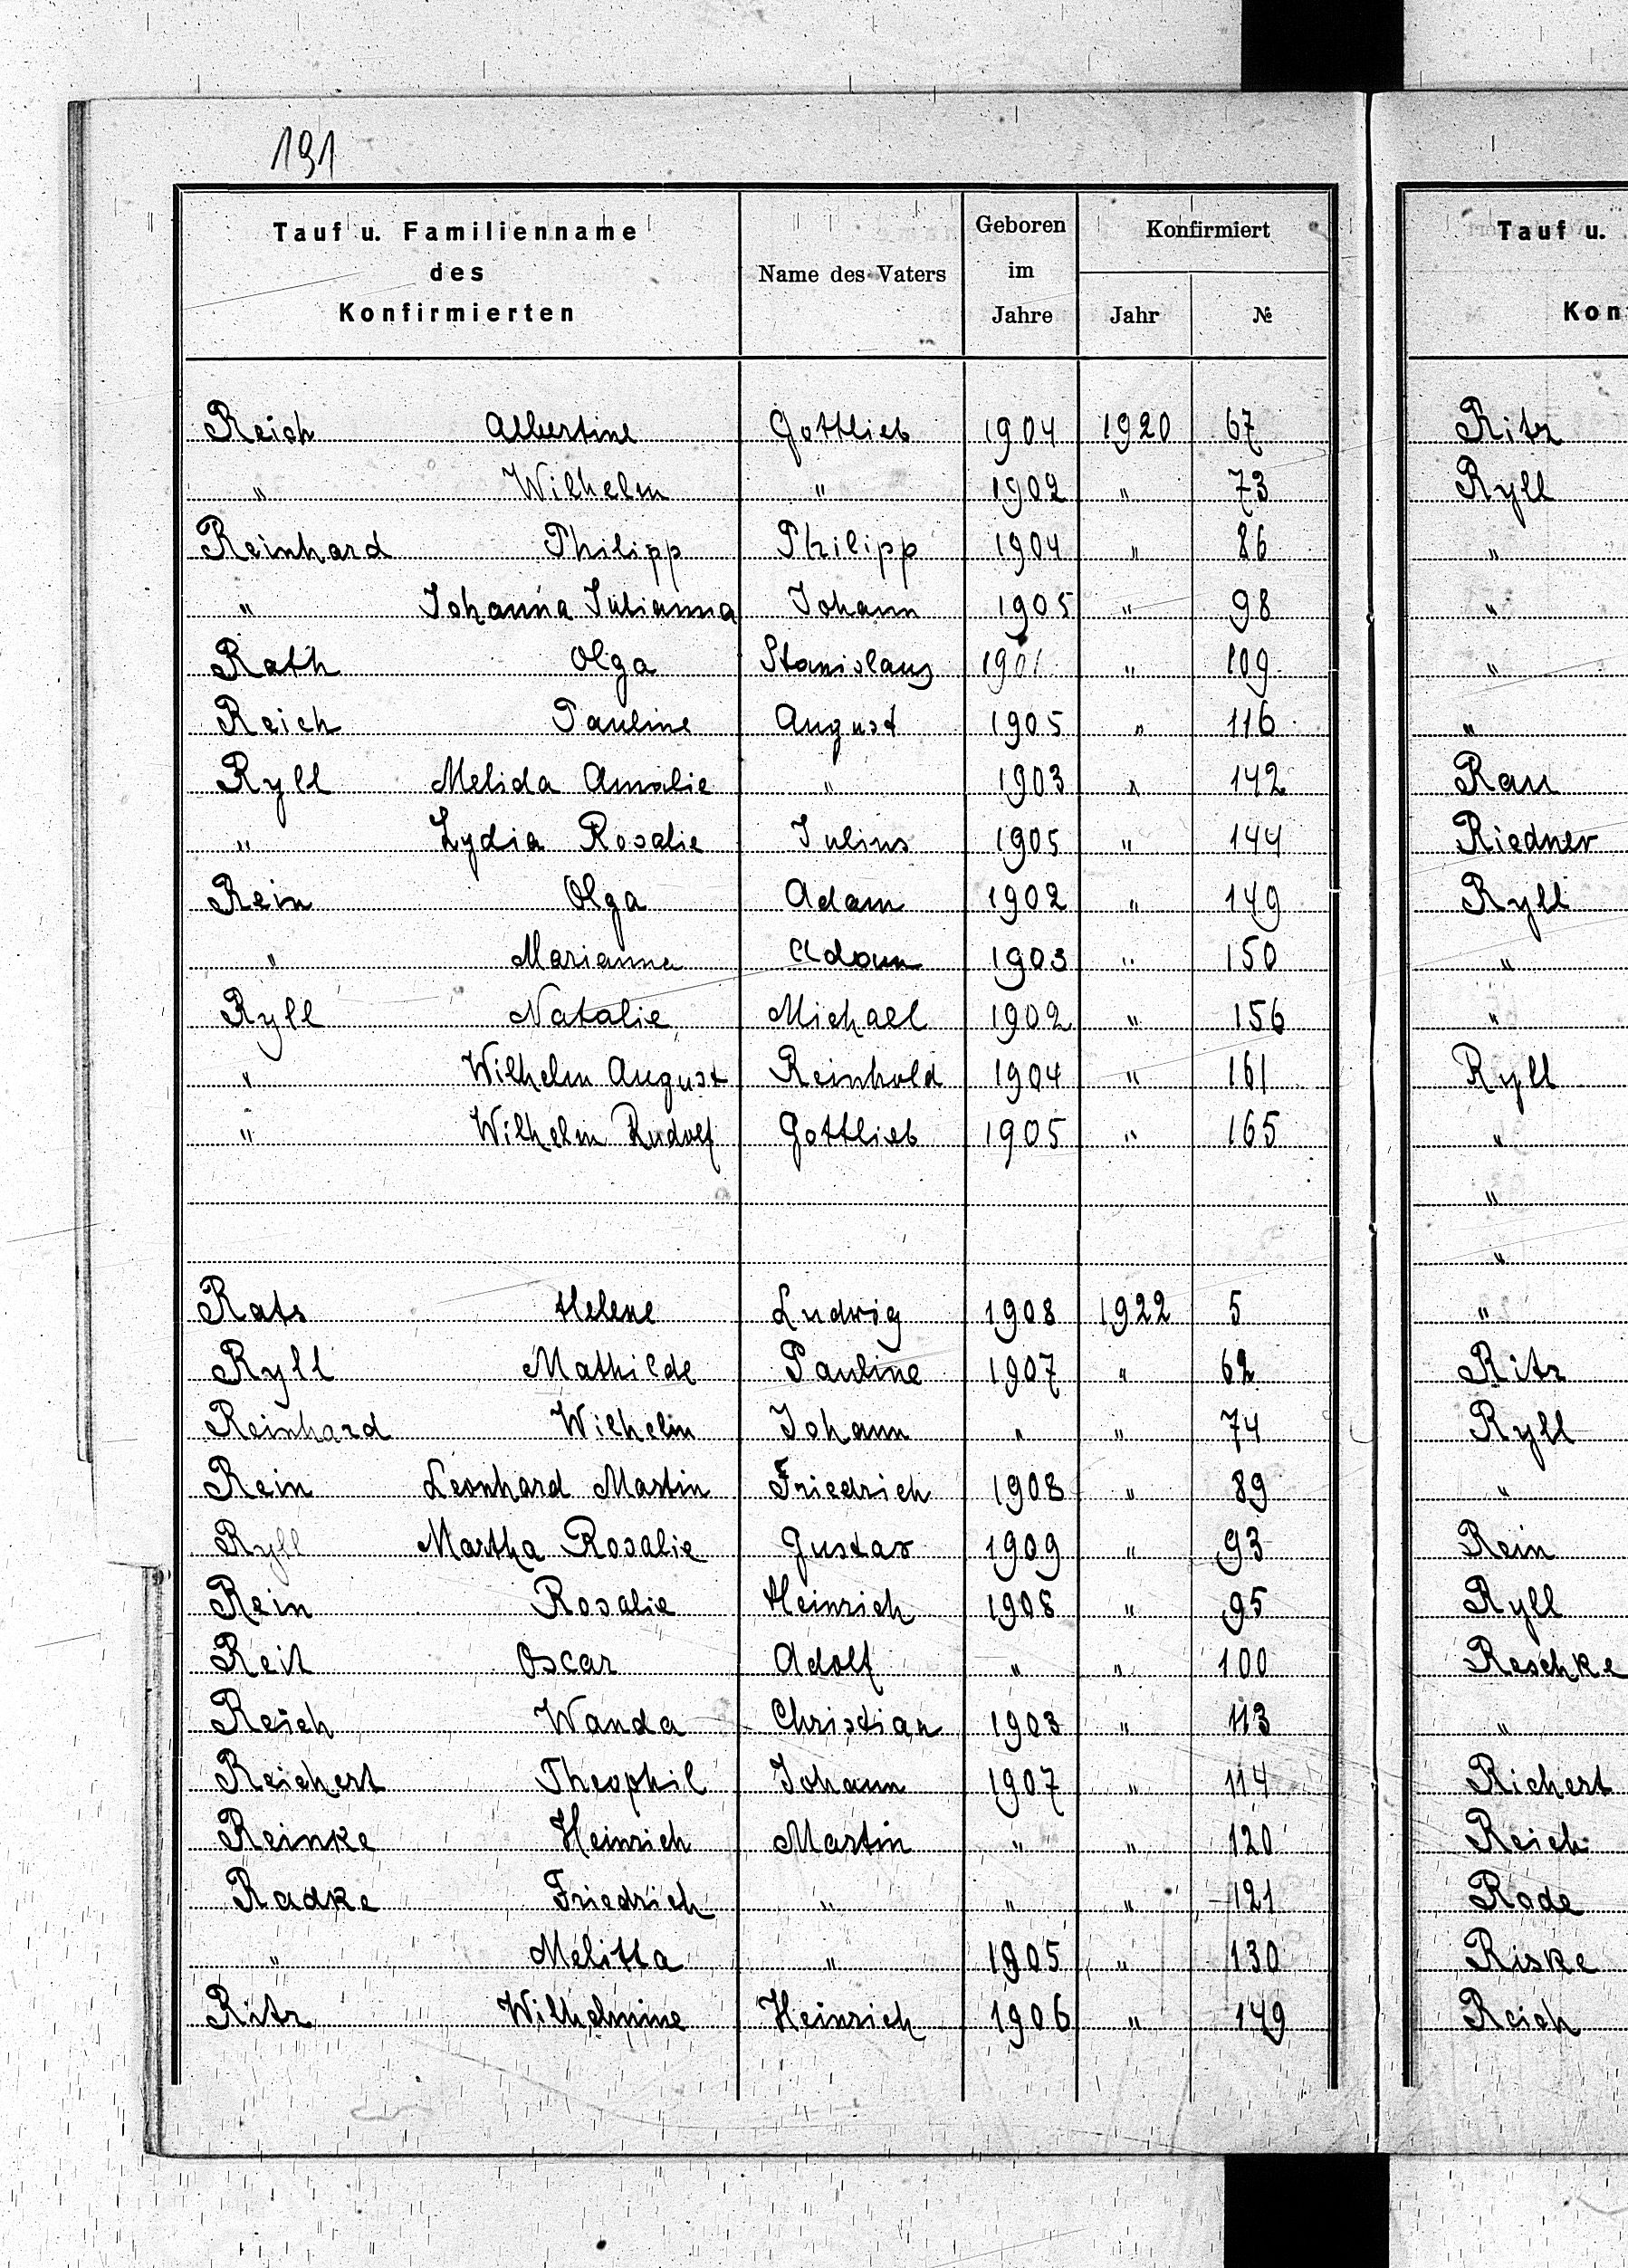 191
Tauf u. Familienname des Konfirmierten Name des Vaters Geboren im Jahre Konfirmiert Jahr №
Reich Albertine Gottlieb 1904 1920 67
" Wilhelm " 1902 " 73
Reinhard Philipp Philipp 1904 " 86
" Johanna Julianna Johann 1905 " 98
Rath Olga Stanislaus 1901 " 109
Reich Pauline August 1905 " 116
Ryll Melida Amalie " 1903 " 142
" Lydia Rosalie Julius 1905 " 144
Rein Olga Adam 1902 " 149
" Marianna Adam 1903 " 150
Ryll Natalie Michael 1902 " 156
" Wilhelm August Reinhold 1904 " 161
" Wilhelm Rudolf Gottlieb 1905 " 165
Rats Helene Ludwig 1908 1922 5
Ryll Mathilde Pauline 1907 " 62
Reinhard Wilhelm Johann " " 74
Rein Leonhard Martin Friedrich 1908 " 89
Ryll Martha Rosalie Gustav 1909 " 93
Rein Rosalie Heinrich 1908 " 95
Reit Oscar Adolf " " 100
Reich Wanda Christian 1903 " 113
Reichert Theophil Johann 1907 " 114
Reinke Heinrich Martin " " 120
Radke Friedrich " " " 121
" Melitta " 1905 " 130
Ritz Wilhelmine Heinrich 1906 " 149
Tauf u.
Kon
Ritz
Ryll
"
"
"
"
Rau
Riedner
Ryll
"
"
Ryll
"
"
"
"
Ritz
Ryll
"
Rein
Ryll
Reschke
"
Richert
Reich
Rode
Riske
Reich